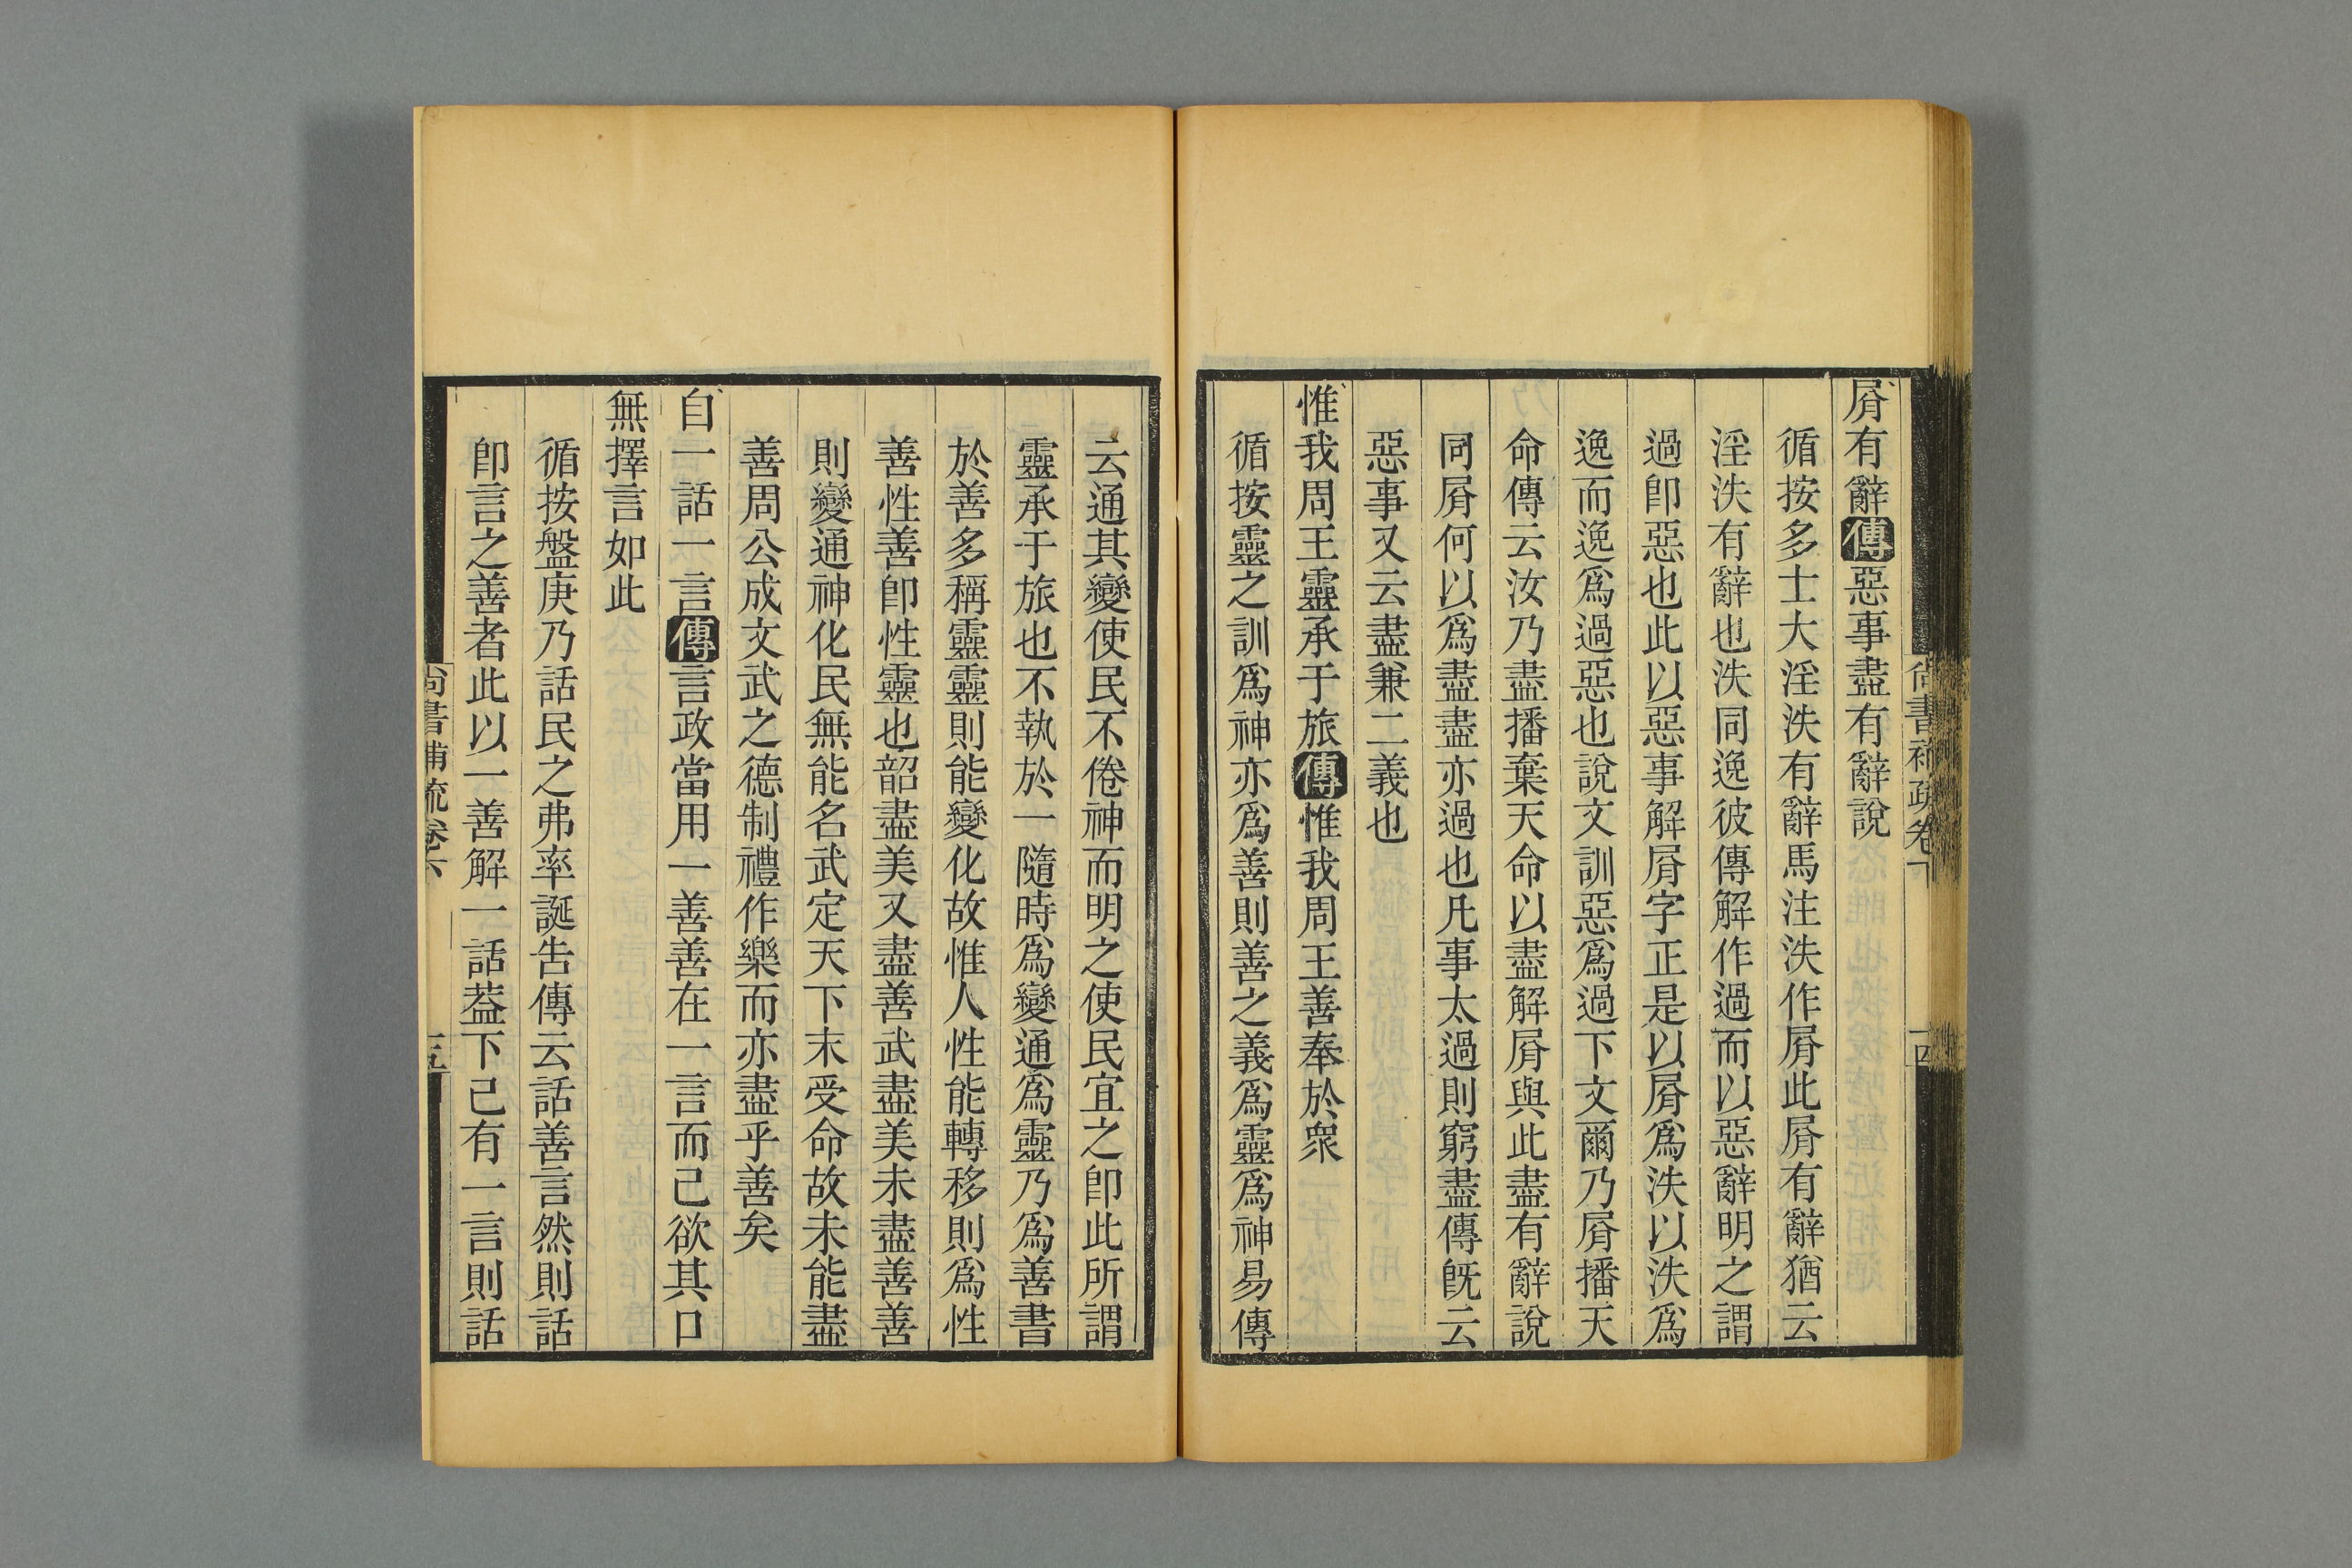 屑有辭傳惡事盡有辭說
循按多士大淫泆有辭馬注泆作屑此屑有辭猶云
淫泆有辭也泆同逸彼傳解作過而以惡辭明之謂
過卽惡也此以惡事解屑字正是以屑爲泆以泆爲
逸而逸爲過惡也說文訓惡爲過下文爾乃屑播天
命傳云汝乃盡播棄天命以盡解屑與此盡有辭說
同屑何以爲盡盡亦過也凡事太過則窮盡傳旣云
惡事又云盡兼二義也
惟我周王靈承于旅傳惟我周王善奉於衆
循按靈之訓爲神亦爲善則善之義爲靈爲神易傳
云通其變使民不倦神而明之使民宜之卽此所謂
靈承于旅也不執於一隨時爲變通爲靈乃爲善書
於善多稱靈靈則能變化故惟人性能轉移則爲性
善性善卽性靈也韶盡美又盡善武盡美未盡善善
則變通神化民無能名武定天下末受命故未能盡
善周公成文武之德制禮作樂而亦盡乎善矣
自一話一言傳言政當用一善善在一言而已欲其口
無擇言如此
循按盤庚乃話民之弗率誕告傳云話善言然則話
卽言之善者此以一善解一話葢下已有一言則話
尚書補疏卷